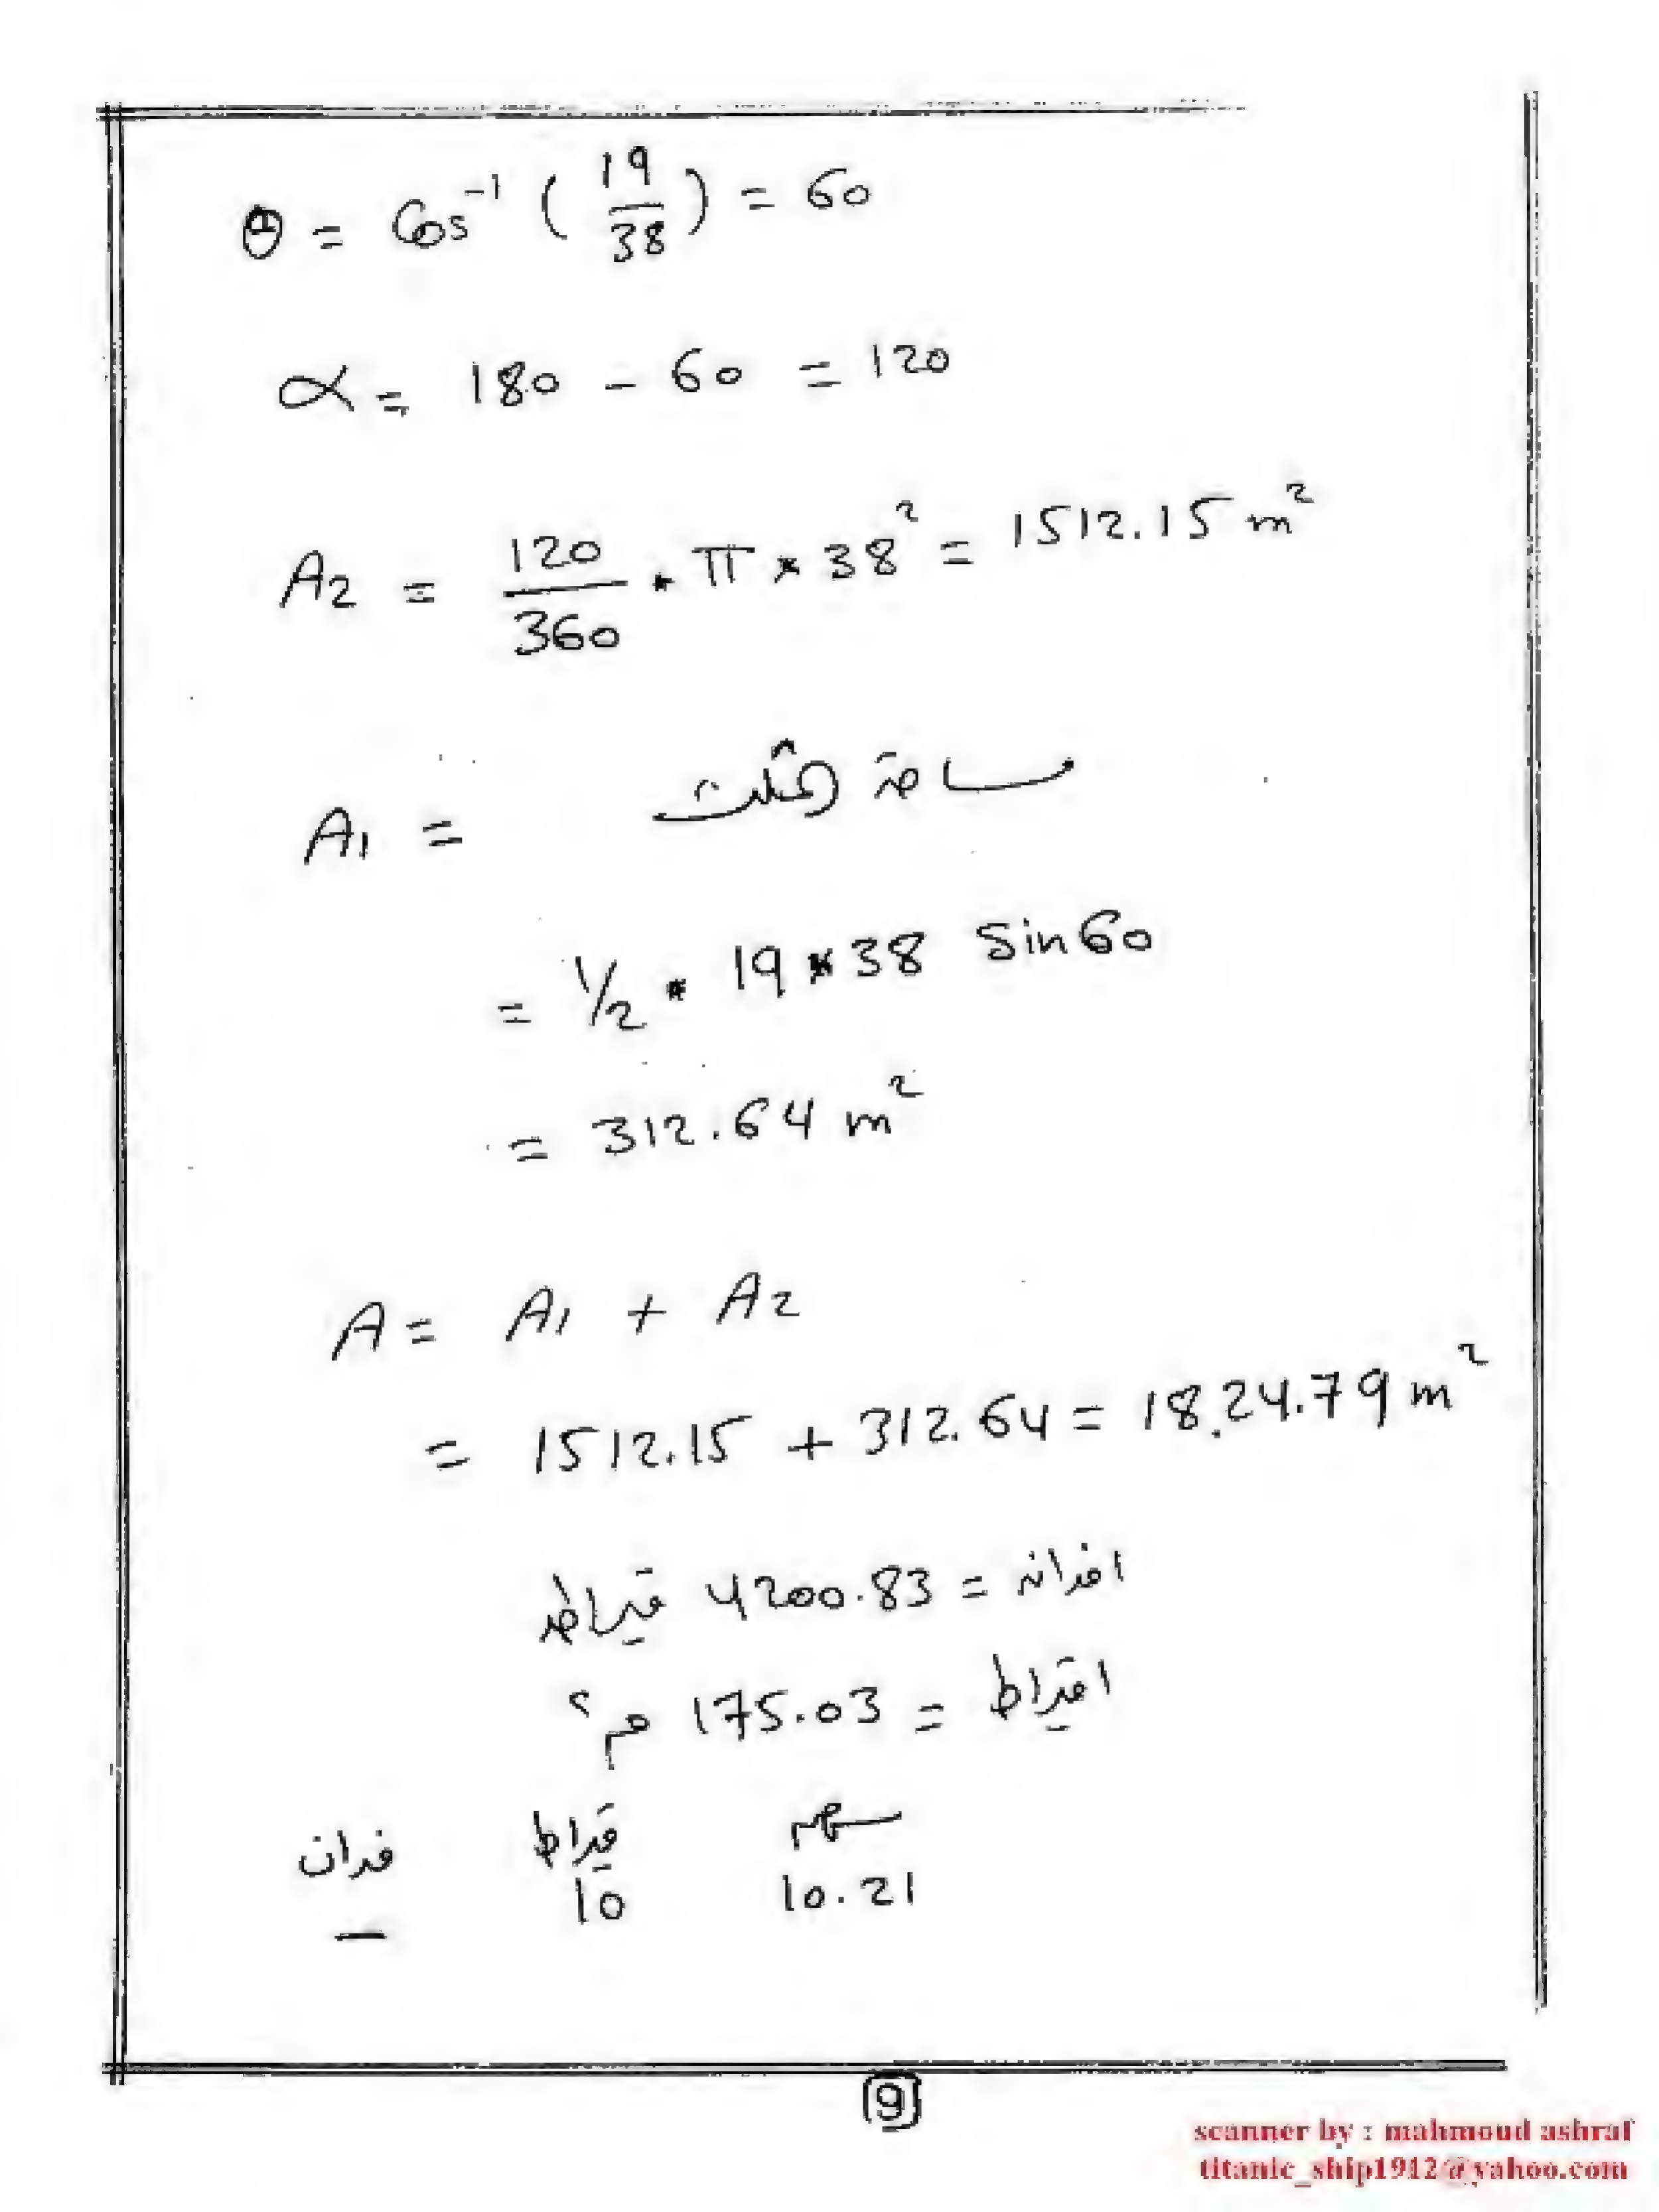 θ = Cos⁻¹ ( 19/38 ) = 60
α = 180 - 60 = 120
A2 = 120/360 * π * 38² = 1512.15 m²
A1 = مساحة المثلث
= 1/2 * 19 * 38 Sin 60
= 312.64 m²
A = A1 + A2
= 1512.15 + 312.64 = 1824.79 m²
افدان = 4200.83 قيراط
اقيراط = 175.03 م٢
سهم قيراط فدان
10.21 10 —
9
scanner by : mahmoud ashraf
titanic_ship1912@yahoo.com